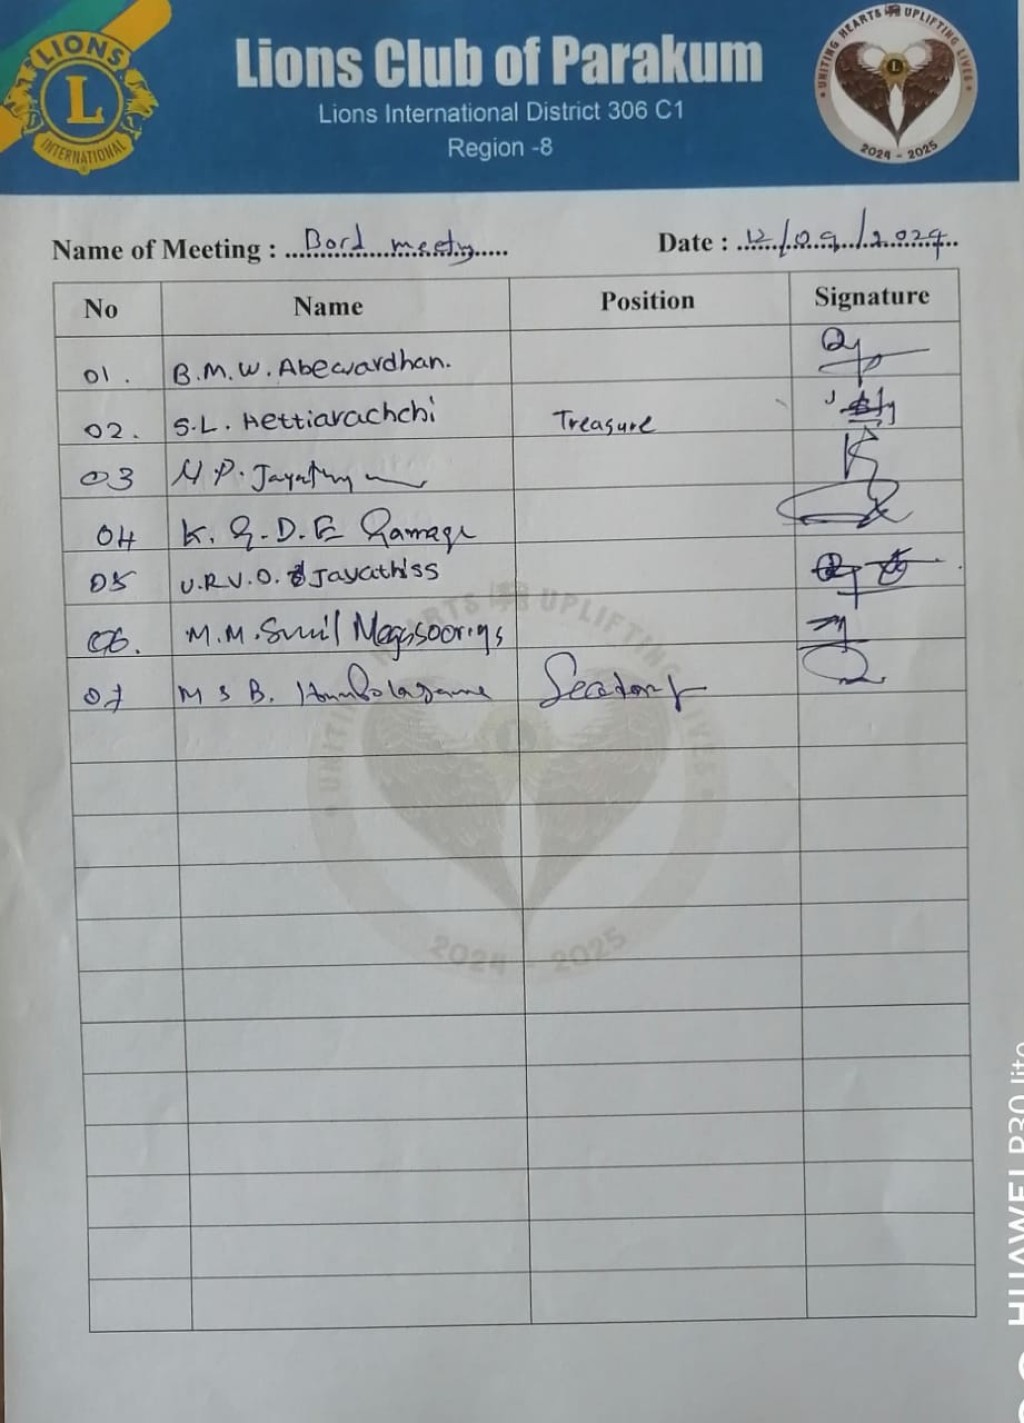 LIONS
L
INTERNATIONAL
Lions Club of Parakum
Lions International District 306 C1
Region -8
UNITING HEARTS UPLIFTING LIVES
L
2024 - 2025
Name of Meeting : Bord meetg Date : 12/09/2024
No Name Position Signature
01. B.M.W. Abewardhan.
02. S.L. Hettiarachchi Treasure
03
04 K. G. D. E Gamage
05 U.R.V.O. Jayathiss
06. M.M. Sunil Megasooriya
07 M S B.
UNITING HEARTS UPLIFTING LIVES
2024 - 2025
HUAWEI P30 lite